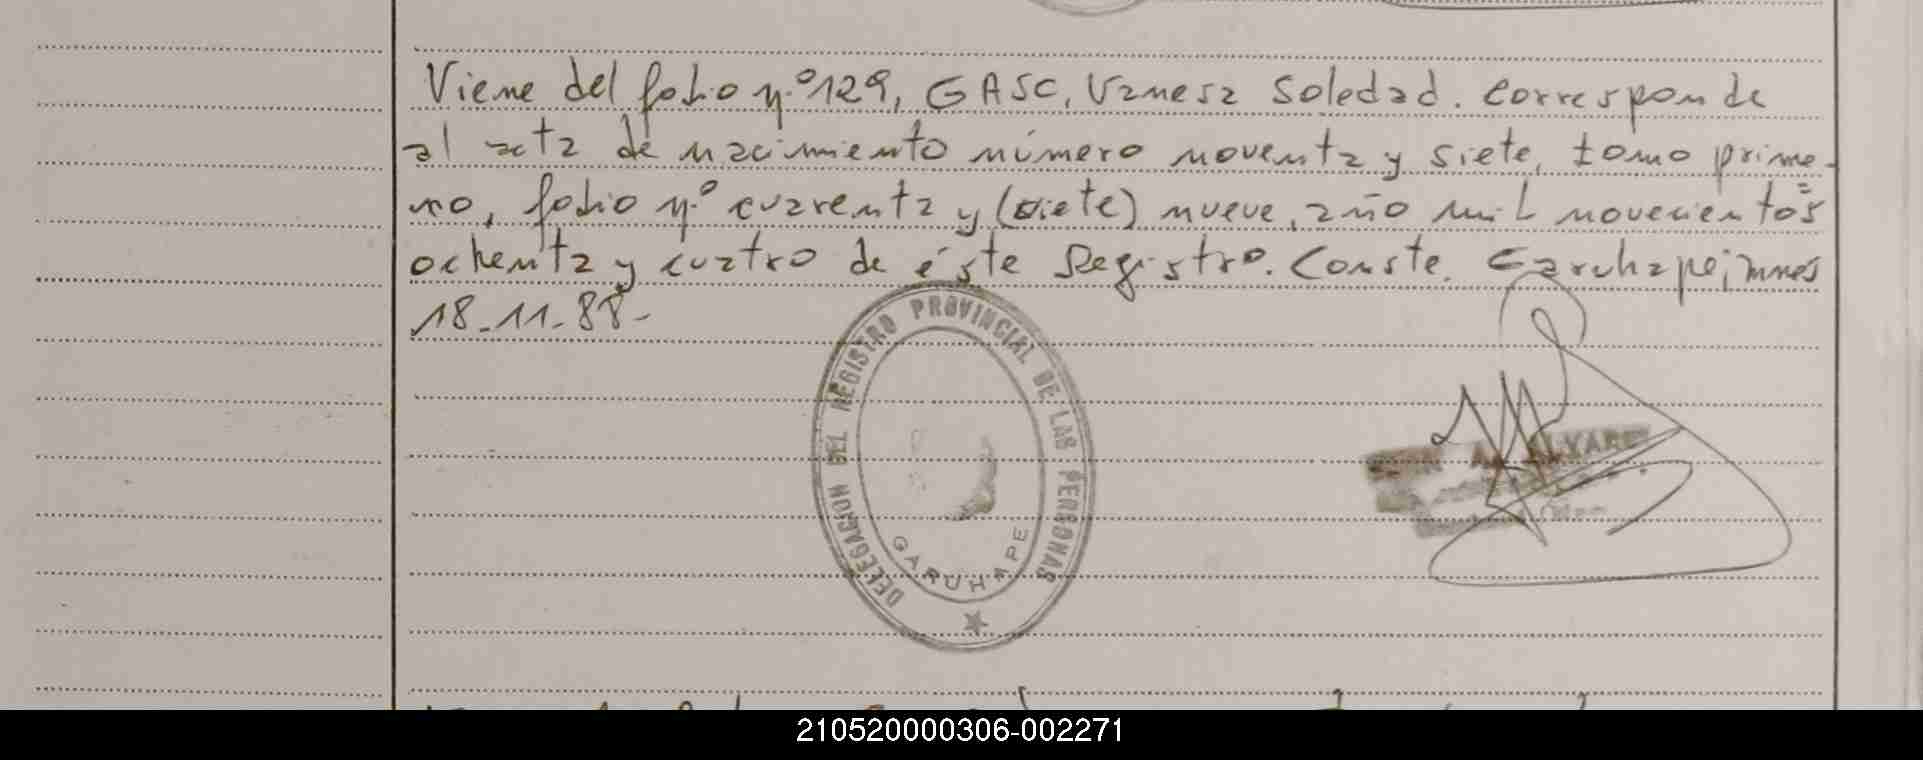 Viene del folio n.º 129, GASC, Vanesa Soledad. Corresponde
al acta de nacimiento número noventa y siete, tomo prime-
ro, folio n.º cuarenta y (siete) nueve, año mil novecientos
ochenta y cuatro de éste Registro. Conste. Garuhapé, Mnes
18-11-88-
DELEGACION DEL REGISTRO PROVINCIAL DE LAS PERSONAS
GARUHAPE
A. ALVAREZ
210520000306-002271